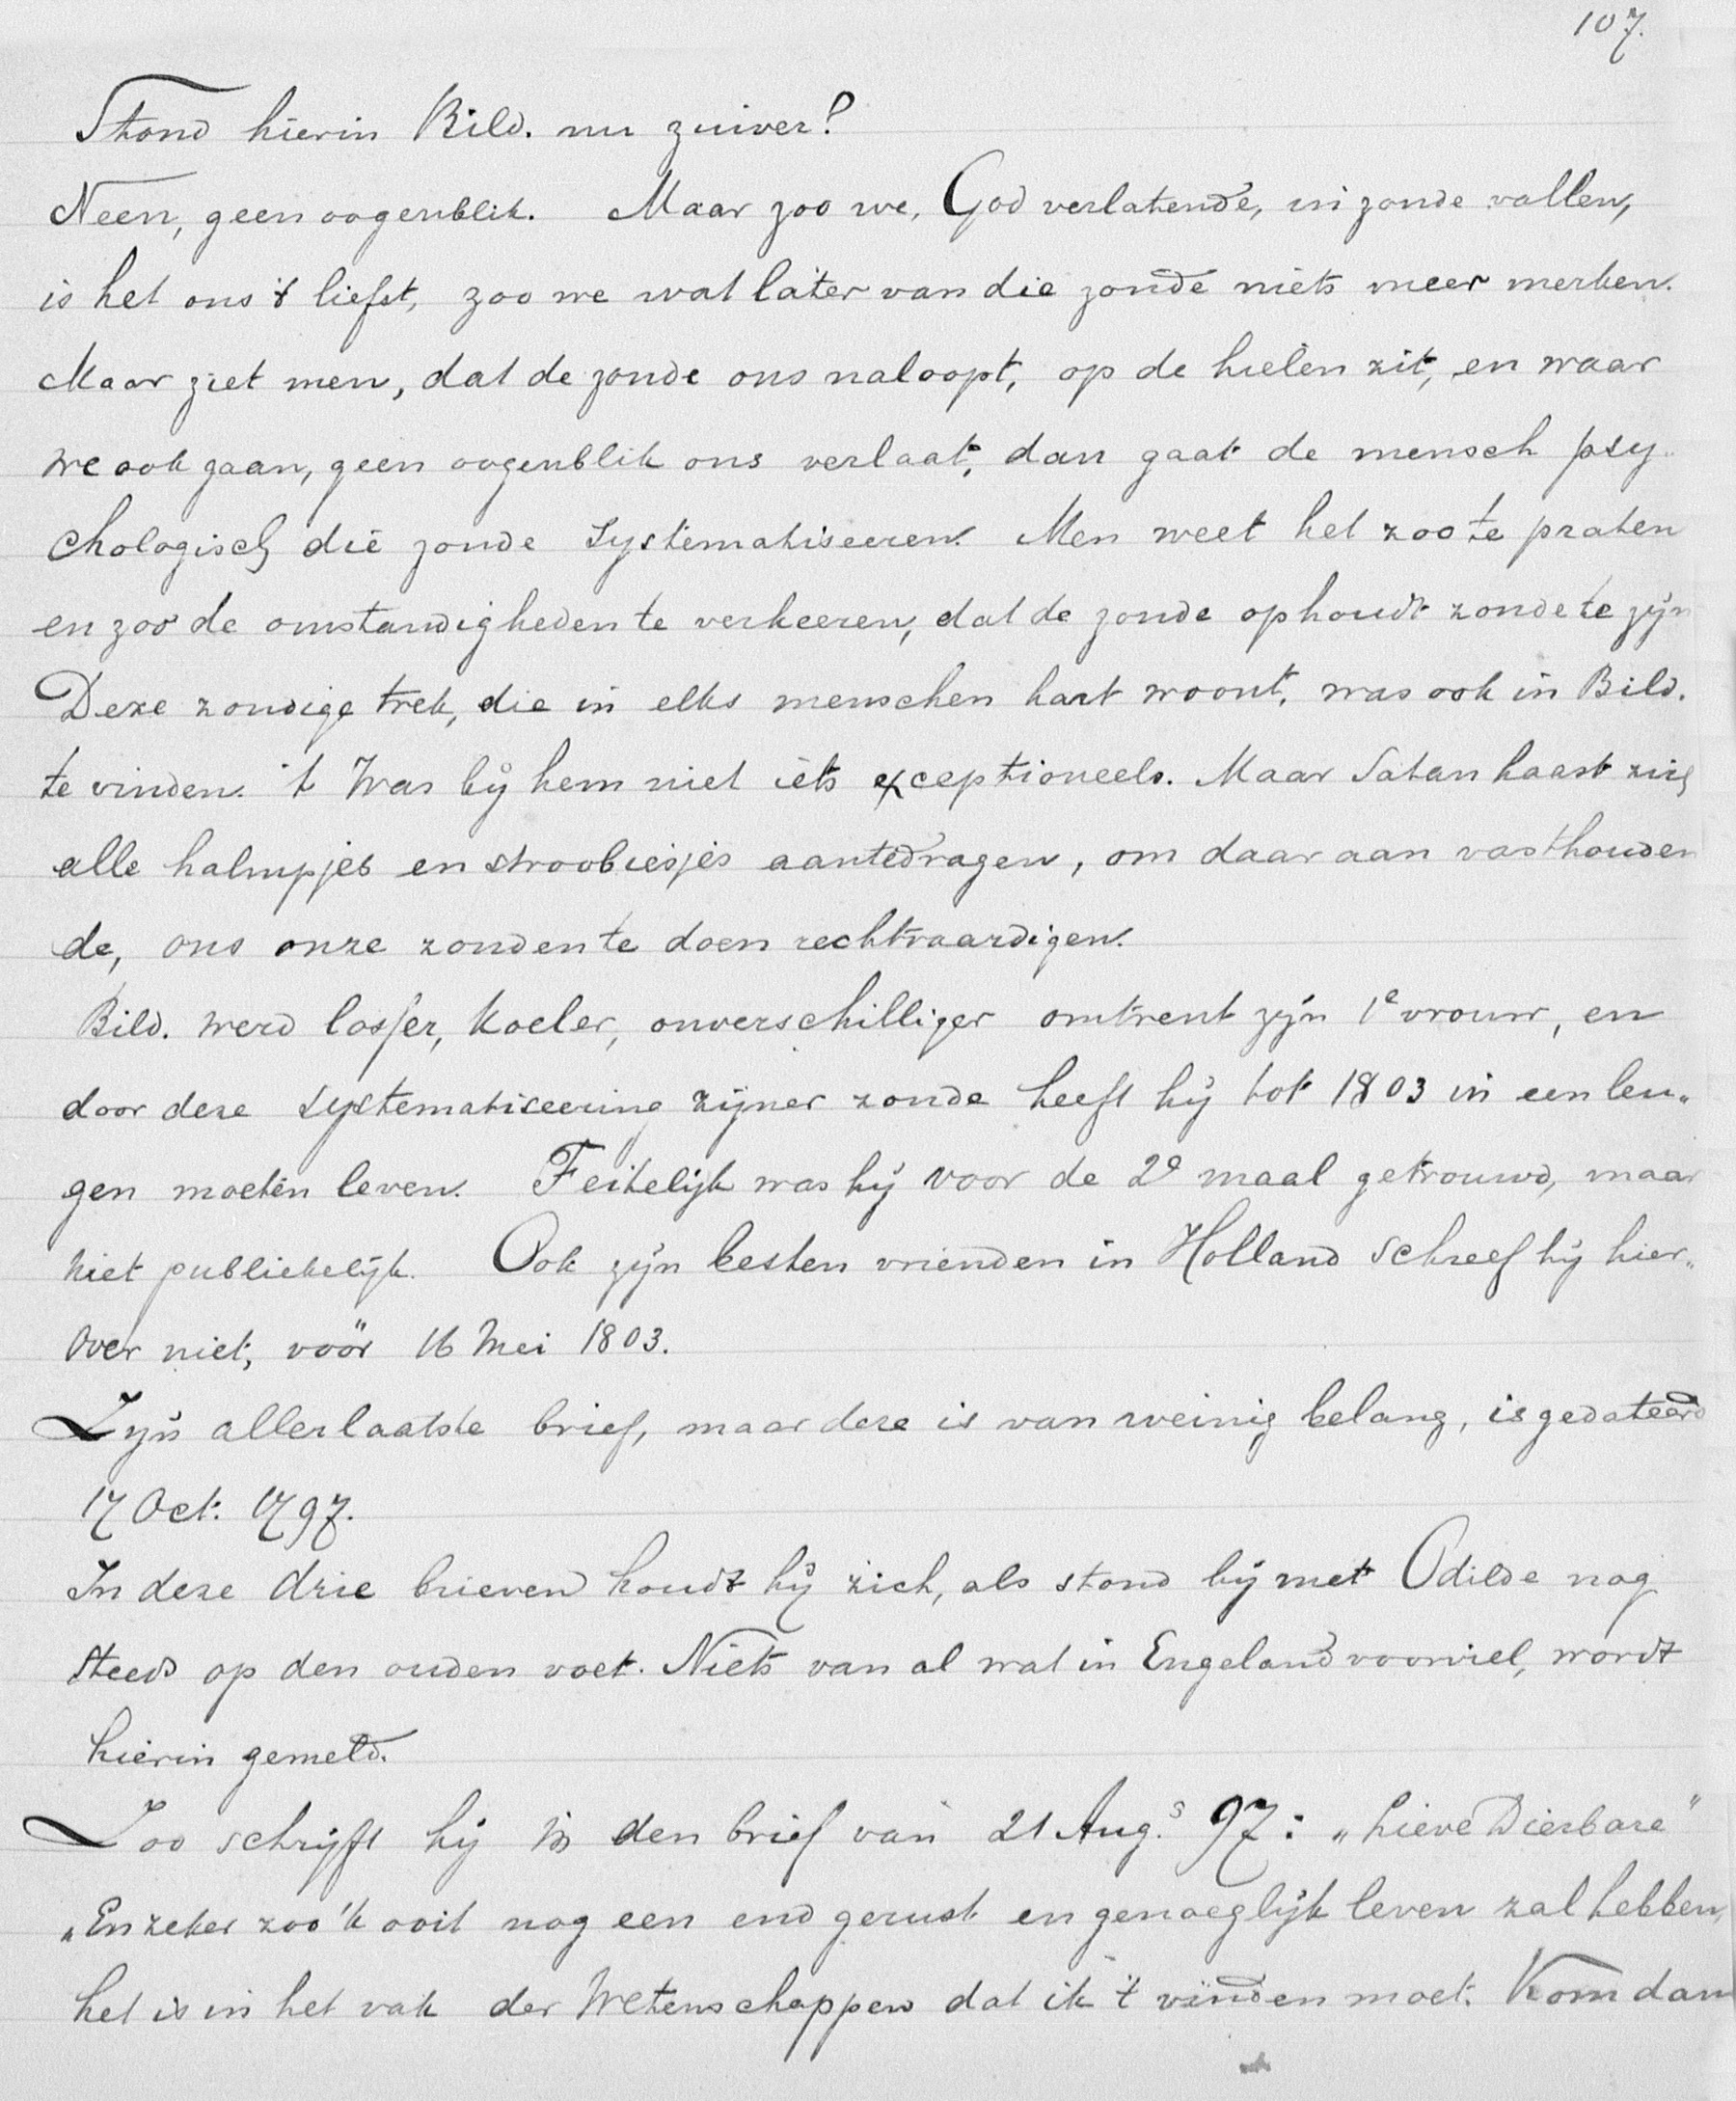 107.
Stond hierin Bild. nu zuiver?
Neen, geen oogenblik. Maar zoo we, God verlatende, in zonde vallen,
is het ons 't liefst, zoo we wat later van die zonde niets meer merken.
Maar ziet men, dat de zonde ons naloopt, op de hielen zit, en waar
we ook gaan, geen oogenblik ons verlaat, dan gaat de mensch psy-
chologisch die zonde systematiseeren. Men weet het zoo te praten
en zoo de omstandigheden te verkeeren, dat de zonde ophoudt zonde te zijn
Deze zondige trek, die in elks menschen hart woont, was ook in Bild.
te vinden. 't Was bij hem niet iets exceptioneels. Maar Satan haast zich
alle halmpjes en stroobiesjes aantedragen, om daaraan vasthouden
de, ons onze zonden te doen rechtvaardigen.
Bild. werd losser, koeler, onverschilliger omtrent zijn 1e vrouw, en
door deze systematiseering zijner zonde heeft hij tot 1803 in een leu„
gen moeten leven. Feitelijk was hij voor de 2e maal getrouwd, maar
niet publiekelijk. Ook zijn besten vrienden in Holland schreef hij hier„
over niet, vóór 16 Mei 1803.
Zijn allerlaatste brief, maar deze is van weinig belang, is gedateerd
17 Oct. 1797.
In deze drie brieven houdt hij zich, als stond hij met Odilde nog
steeds op den ouden voet. Niets van al wat in Engeland voorviel, wordt
hierin gemeld.
Zoo schrijft hij in den brief van 21 Aug.s 97: „Lieve Dierbare"
„En zeker zoo 'k ooit nog een end gerust en genoeglijk leven zal hebben,
het is in het vak der Wetenschappen dat ik 't vinden moet. Kom dan